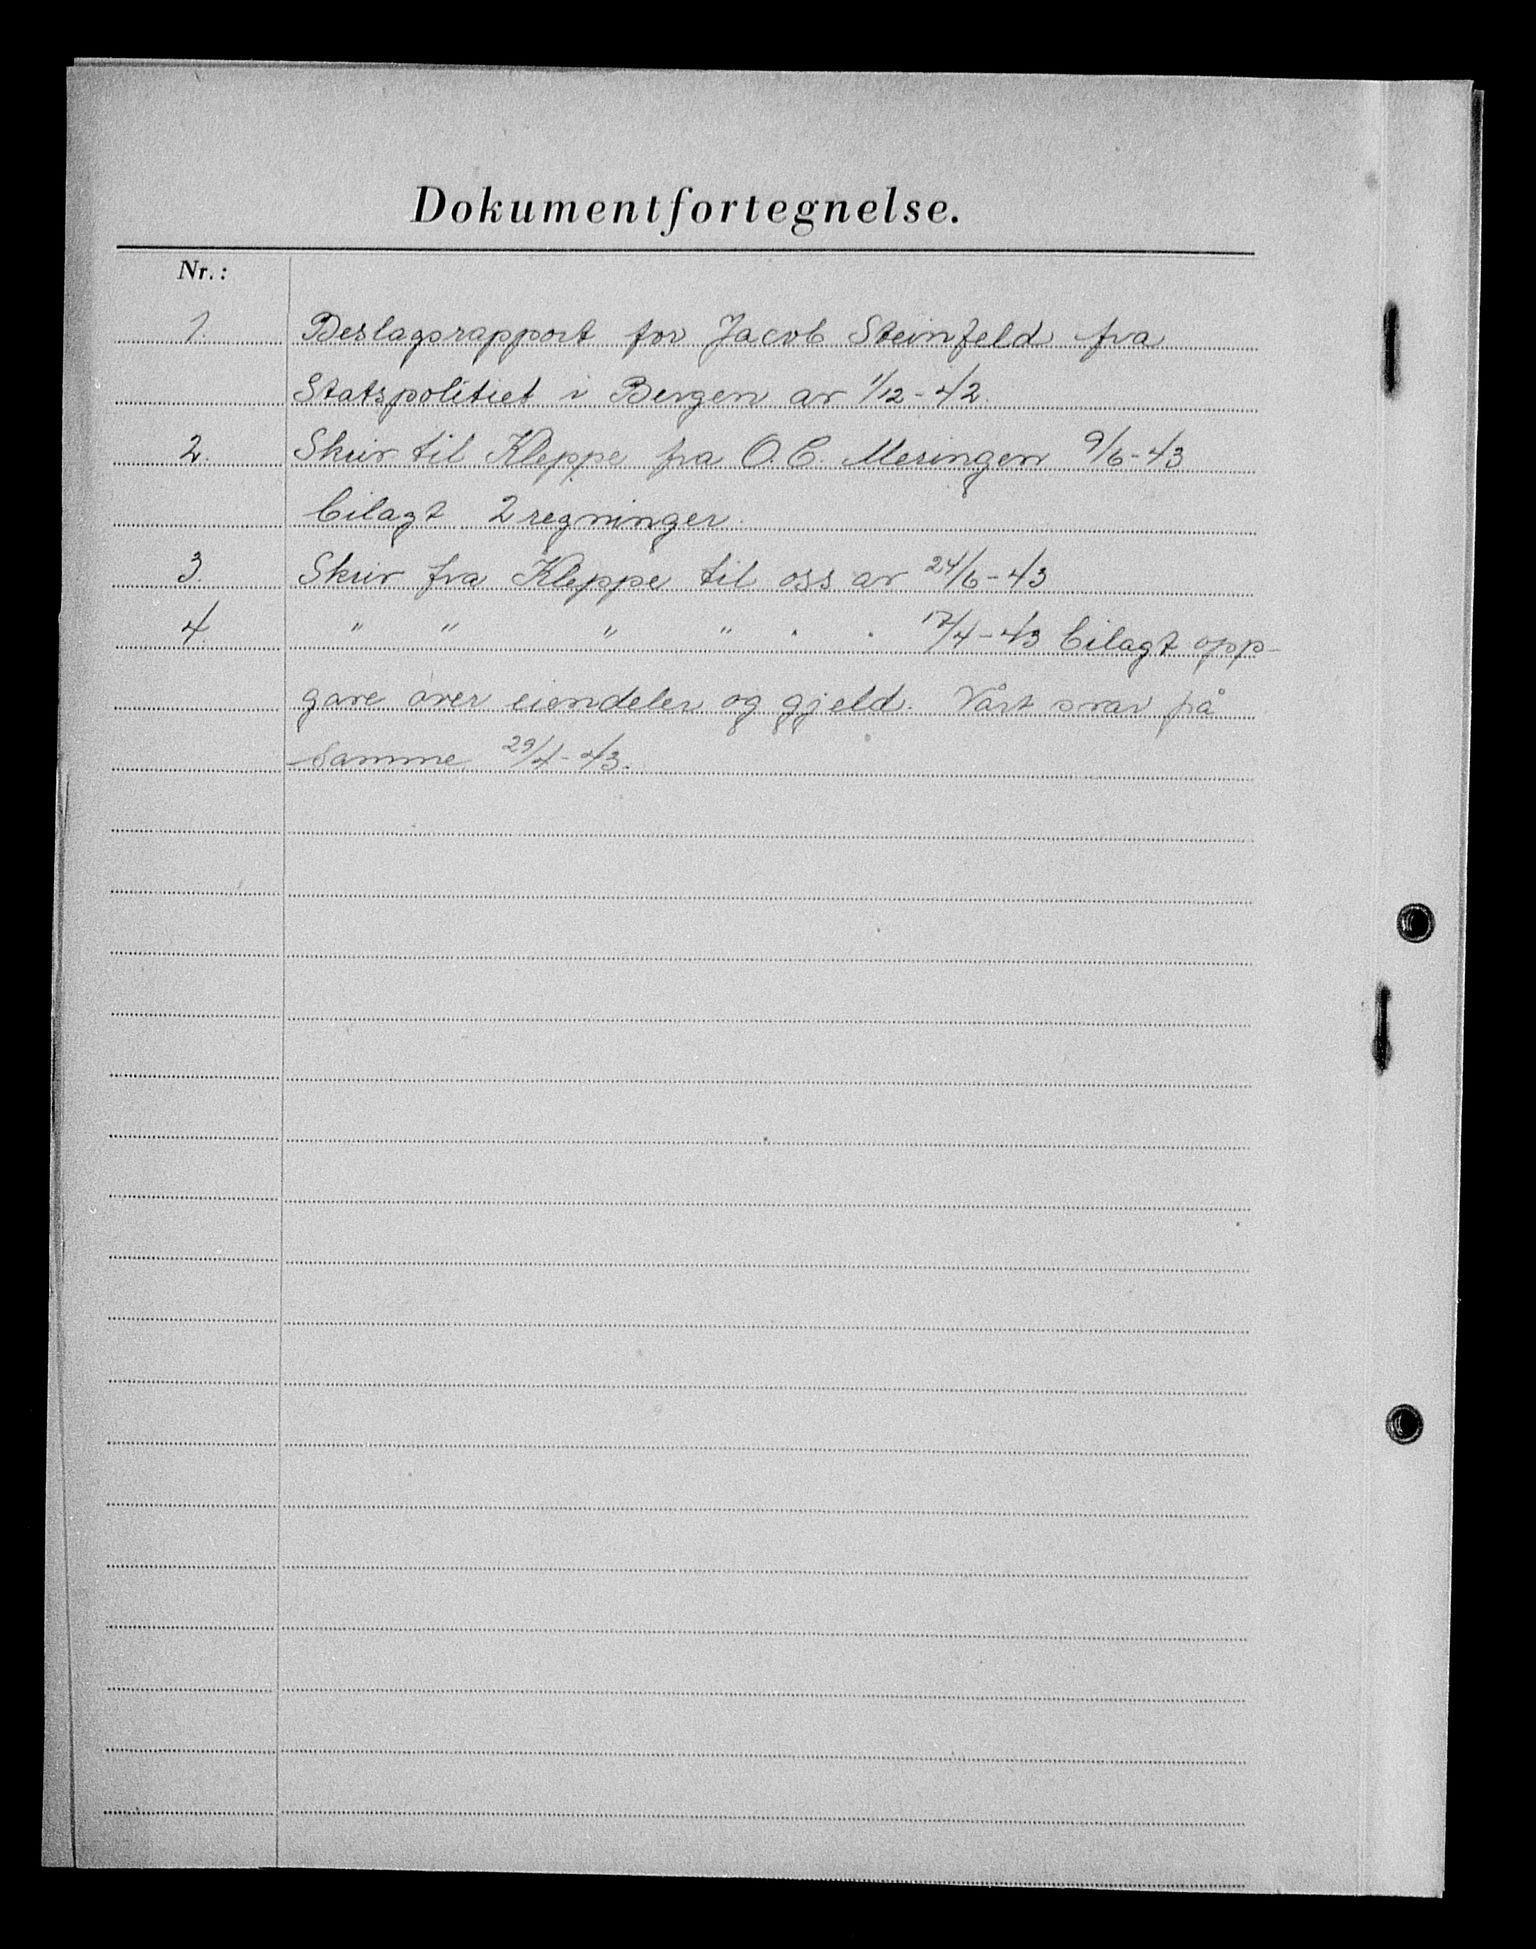 Dokumentfortegnelse.
Nr.:
1. Beslagsrapport for Jacob Steinfeld fra
Statspolitiet i Bergen av 1/12-42.
2. Skriv til Kleppe fra O. C. Meringen 9/6-43
bilagt 2 regninger.
3. Skriv fra Kleppe til oss av 24/6-43
4. " " " " " " 17/4-43 bilagt opp-
gave over eiendeler og gjeld. Vårt svar på
samme 29/4-43.